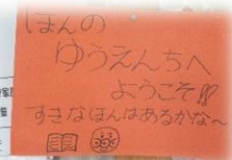 ほんの
ゆうえんちへ
ようこそ!!
すきなほんはあるかな～